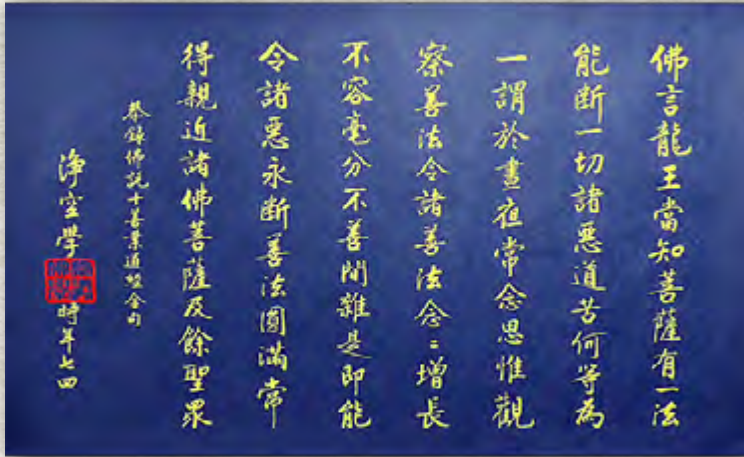 佛言龍王當知菩薩有一法
能断一切諸惡道苦何等為
一謂於晝夜常念思惟觀
察善法令諸善法念〻增長
不容毫分不善間雜是即能
令諸惡永断善法圓滿常
得親近諸佛菩薩及餘聖眾
恭錄佛説十善業道經金句
淨空學
時年七四